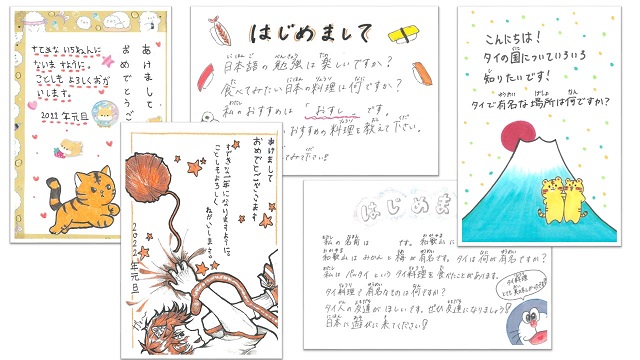 あけまして
おめでとうご
すてきな いちねんに
なります ように。
ことしも よろしく おねが
いします。
2022年 元旦
はじめまして
日本語の勉強は楽しいですか?
食べてみたい日本の料理は何ですか?
私のおすすめは「おすし」です。
おすすめの料理を教えて下さい。
こんにちは!
タイの国についていろいろ
知りたいです!
タイで有名な場所は何ですか?
あけまして
おめでとうございます
すてきな一年になりますように。
ことしもよろしく
おねがいします。
2022年元旦
はじめま
私の名前は です。和歌山に
和歌山はみかんと梅が有名です。タイは何が有名ですか?
私はパッタイというタイ料理を食べたことがあります。
タイ料理で有名なものは何ですか?
タイ人の友達がほしいです。ぜひ友達になりましょう!
日本に遊びに来てください!
タイ料理